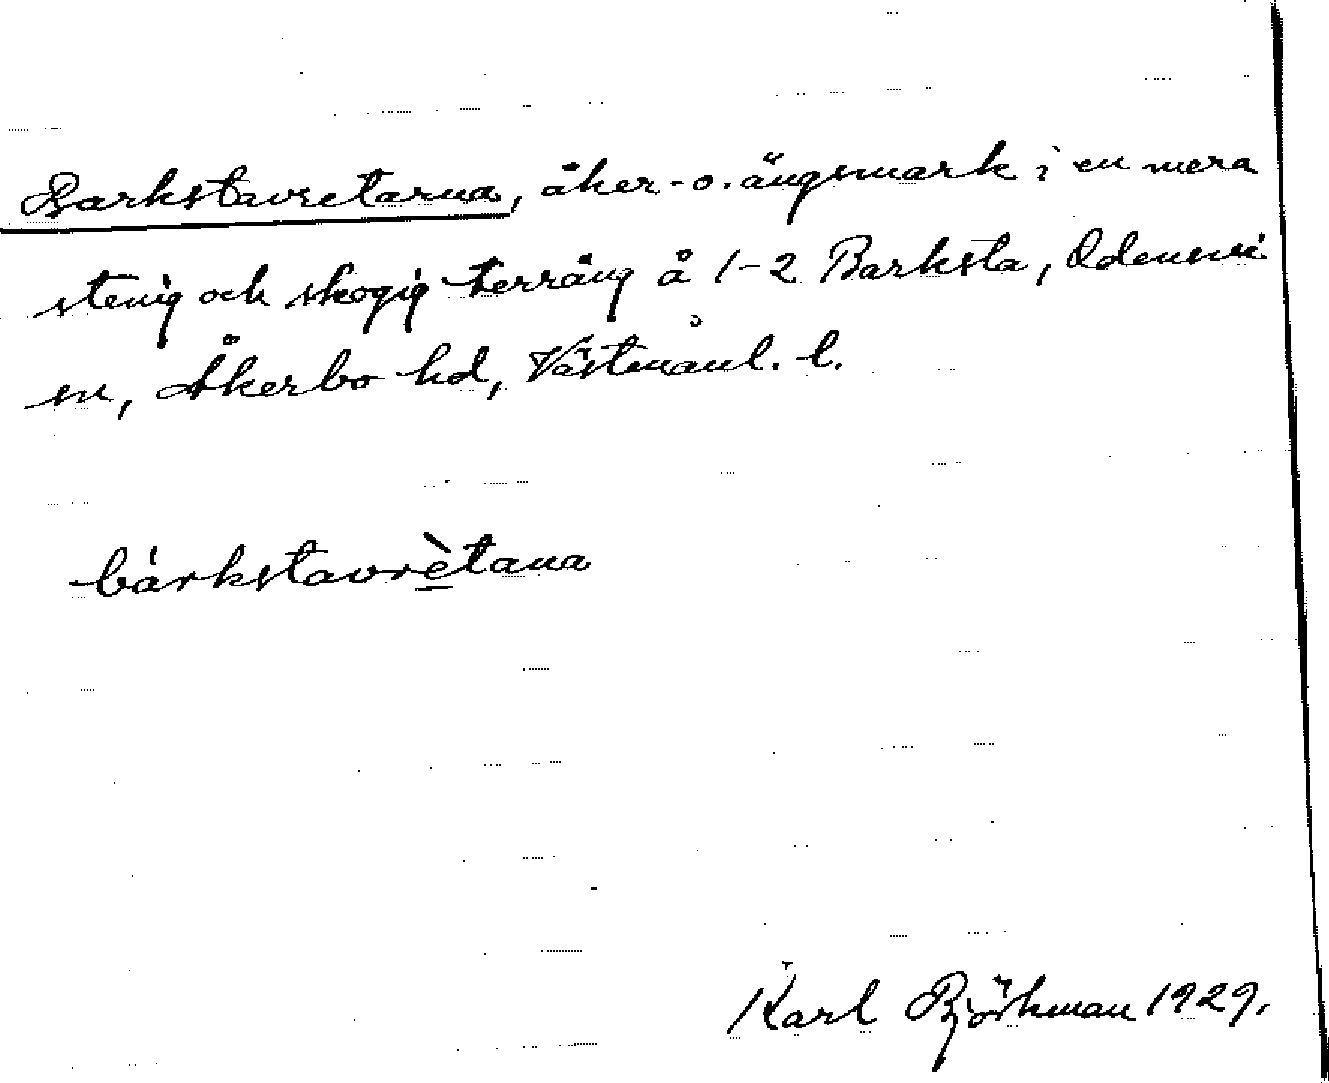 Barkstavretarna, åker- o. ängsmark i en mera
stenig och skogig terräng å 1-2 Barksta, Odensvi
sn, Åkerbo hd, Västmanl. l.
bárkstavrètana
Karl Björkman 1929.